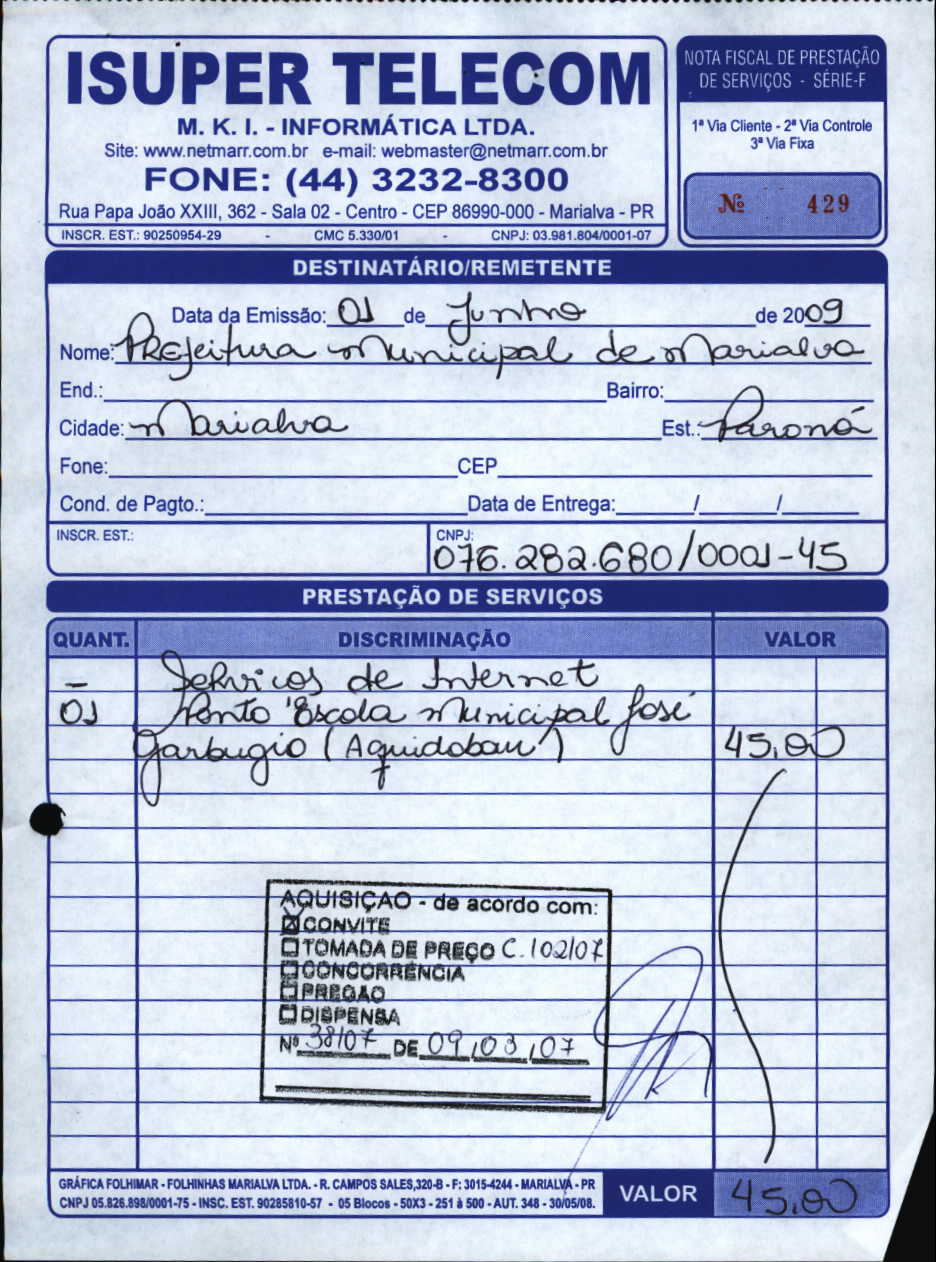 ISUPER TELECOM
M. K. I. - INFORMÁTICA LTDA.
Site: www.netmarr.com.br e-mail: webmaster@netmarr.com.br
FONE: (44) 3232-8300
Rua Papa João XXIII, 362 - Sala 02 - Centro - CEP 86990-000 - Marialva - PR
INSCR. EST.: 90250954-29 - CMC 5.330/01 - CNPJ: 03.981.804/0001-07
NOTA FISCAL DE PRESTAÇÃO
DE SERVIÇOS - SÉRIE-F
1ª Via Cliente - 2ª Via Controle
3ª Via Fixa
Nº 429
DESTINATÁRIO/REMETENTE
Data da Emissão: 01 de Junho de 2009
Nome: Prefeitura Municipal de Marialva
End.: Bairro:
Cidade: Marialva Est.: Paraná
Fone: CEP
Cond. de Pagto.: Data de Entrega: / /
INSCR. EST.: CNPJ:
076.282.680/0001-45
PRESTAÇÃO DE SERVIÇOS
QUANT. DISCRIMINAÇÃO VALOR
- Serviços de Internet
01 Ponto Escola Municipal José
Garbugio (Aquidaban) 45,00
AQUISIÇÃO - de acordo com:
CONVITE
TOMADA DE PREÇO C. 102/07
CONCORRÊNCIA
PREGÃO
DISPENSA
Nº 38/07 DE 09/03/07
GRÁFICA FOLHIMAR - FOLHINHAS MARIALVA LTDA. - R. CAMPOS SALES,320-B - F: 3015-4244 - MARIALVA - PR
CNPJ 05.826.898/0001-75 - INSC. EST. 90285810-57 - 05 Blocos - 50X3 - 251 à 500 - AUT. 348 - 30/05/08.
VALOR 45,00